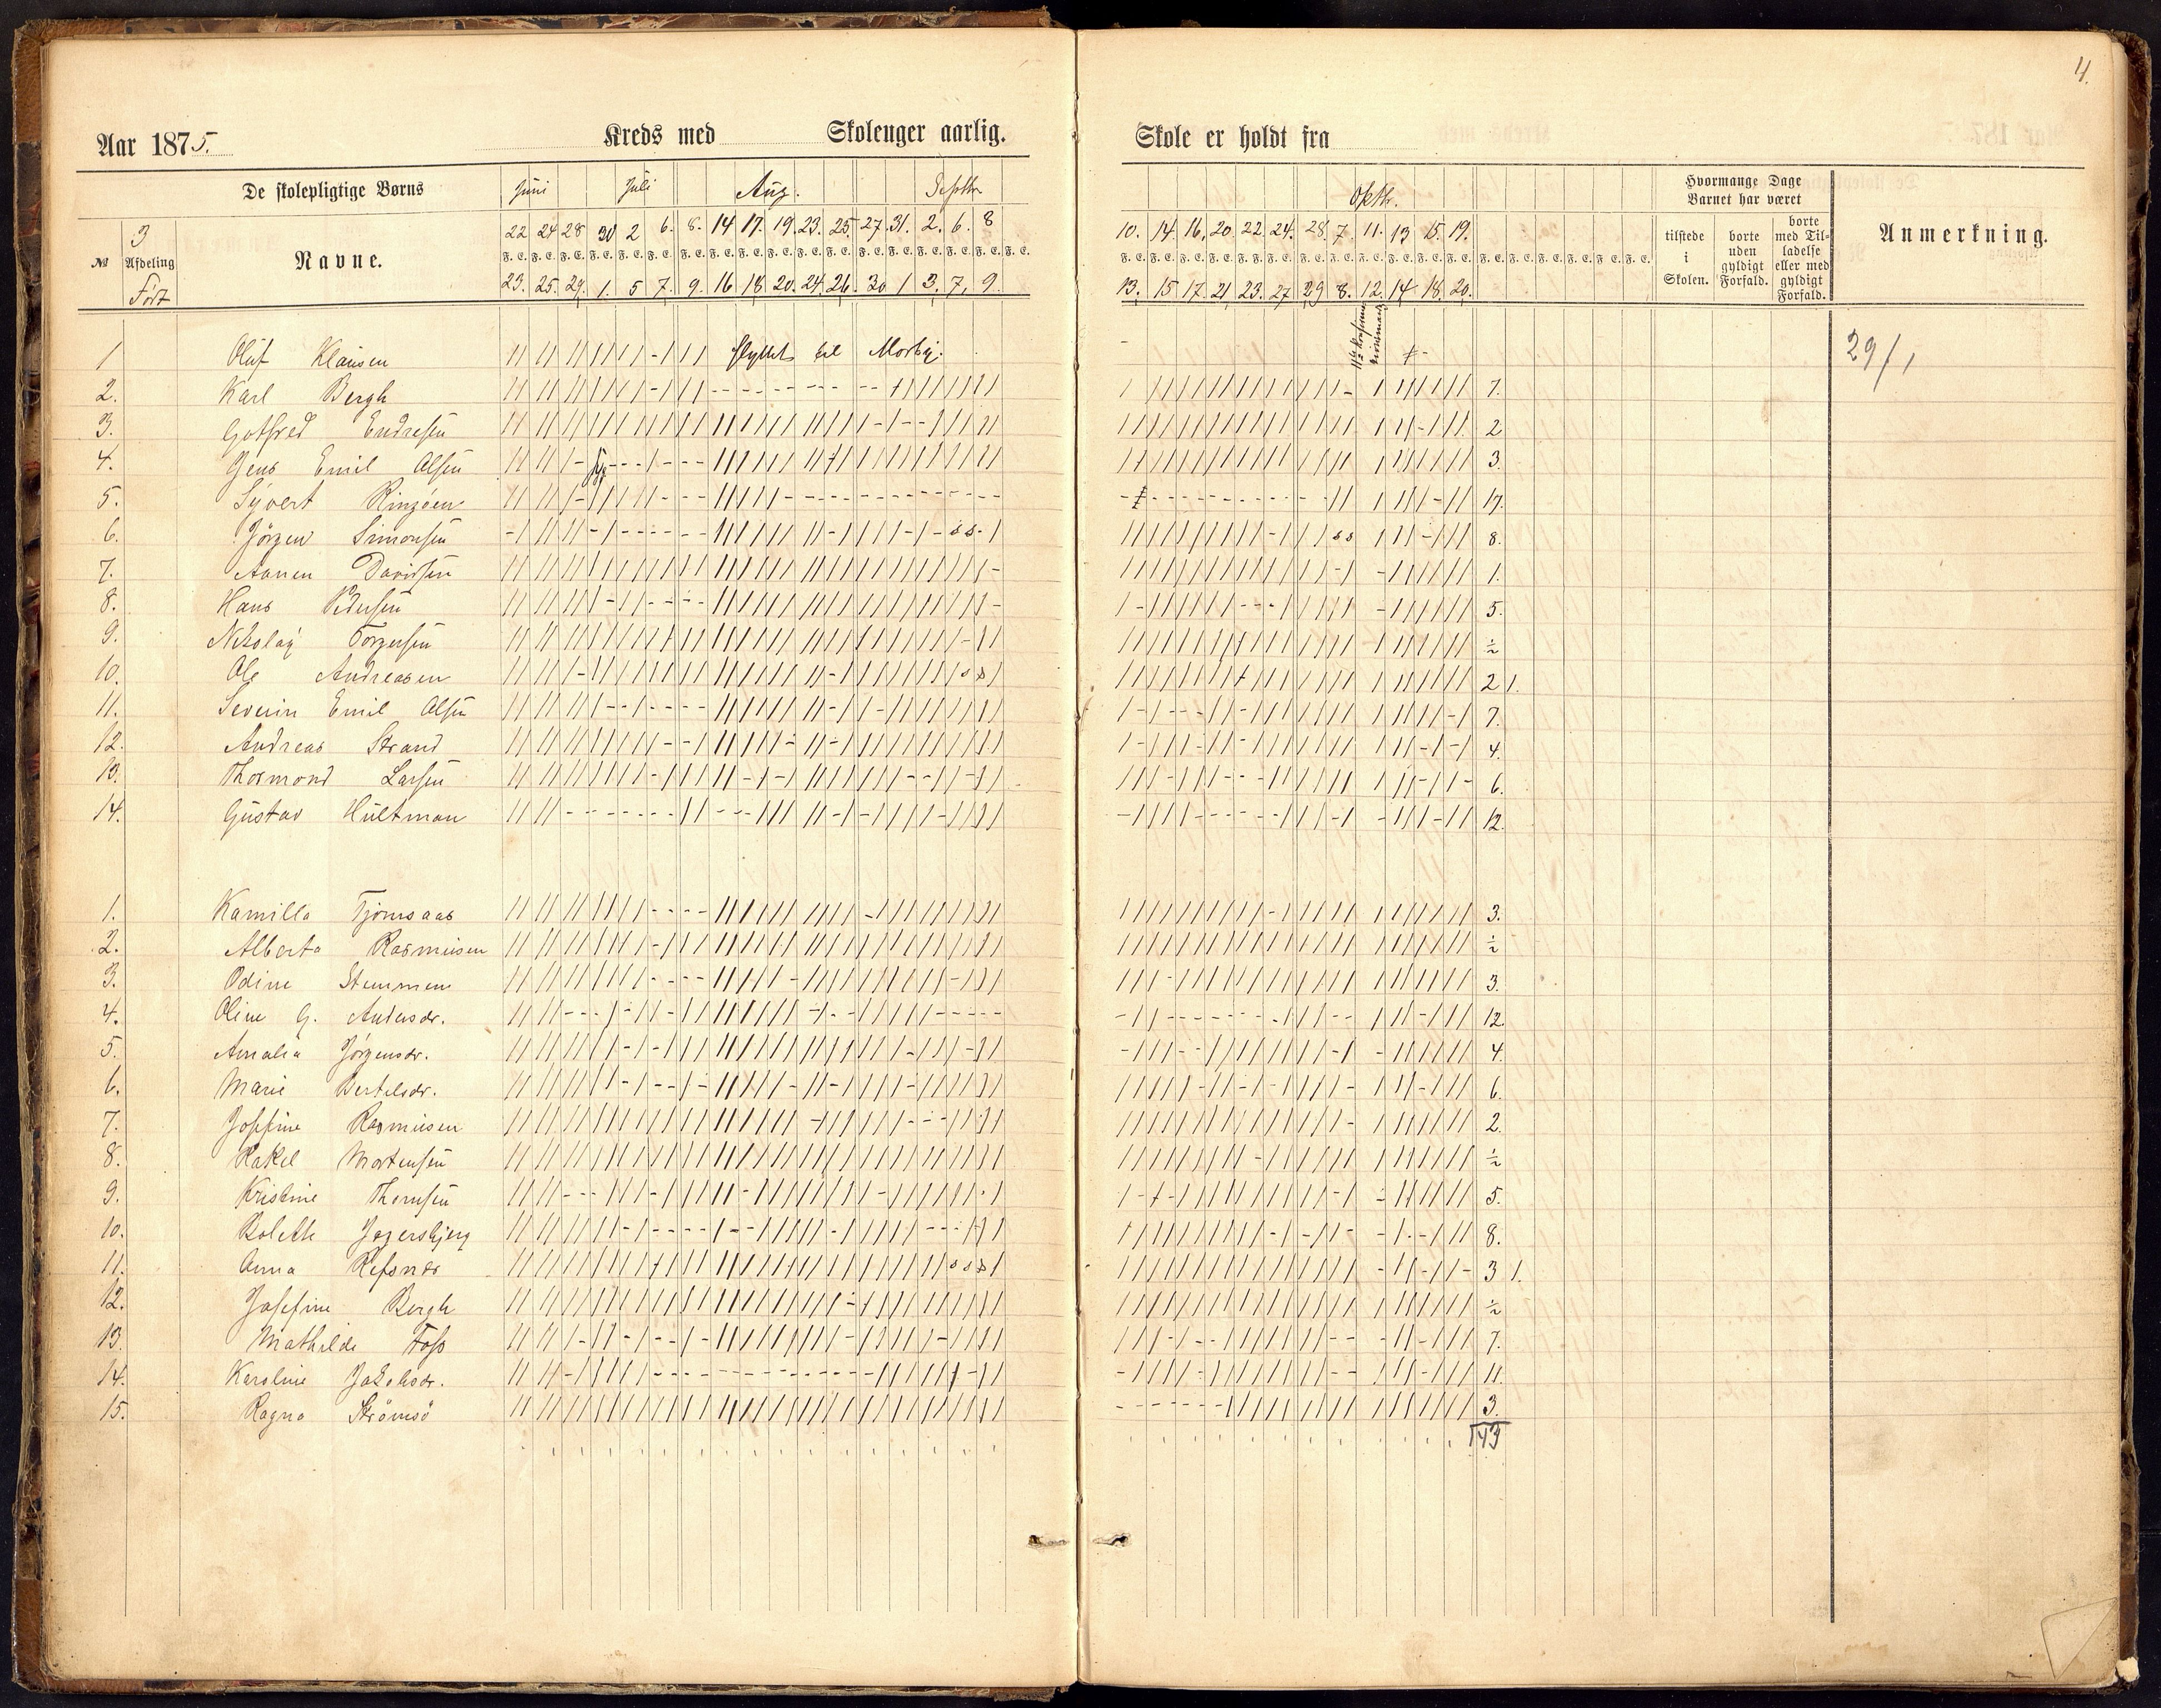 4.
Aar 1875. Kreds med Skolenger aarlig. Skole er holdt fra
De skolepligtige Børns Juni Juli Aug. Septbr Oktbr. Hvormange Dage Barnet har været
№ 3 Afdeling Navne. tilstede i Skolen. borte uden gyldigt Forfald. borte med Tilladelse eller med gyldigt Forfald. Anmerkning.
22 24 28 30 2 6. 8. 14 17. 19. 23. 25. 27. 31. 2. 6. 8 10. 14. 16, 20. 22. 24. 28. 7. 11. 13 15. 19.
F. E. F. E. F. E. F. E. F. E. F. E. F. E. F. E. F. E. F. E. F. E. F. E. F. E. F. E. F. E. F. E. F. E. F. E.
23. 25. 29. 1. 5 7. 9. 16 18. 20. 24. 26. 30 1 3. 7, 9. 13. 15 17. 21 23. 27 29 8. 12. 14 18. 20.
1 Oluf Klausen flyttet til Mosby. 29/1
2. Karl Bergh 7.
3. Gotfred Endresen 2
4. Jens Emil Olsen syg 3.
5. Syvert Ringöen 17.
6. Jörgen Simonsen 8.
7. Aanen Davidsen 1.
8. Hans Pedersen 5.
9. Nikolay Torgersen ½
10. Ole Andreasen 2 1.
11. Severin Emil Olsen 7.
12. Andreas Strand 4.
13. Thormond Larsen 6.
14. Gustav Hultman 12.
1. Kamilla Tjomsaas 3.
2. Alberta Rasmusen ½
3. Odine Stemmen 3.
4. Oline G. Andersdr. 12.
5. Amalia Jörgensdr. 4.
6. Marie Bertelsdr. 6.
7. Josefine Rasmusen 2.
8. Rakel Mortensen ½
9. Kristine Thomsen 5.
10. Bolette Jegersbjerg 8.
11. Anna Refsnes 3 1.
12. Josefine Bergh ½
13. Mathilde Foss 7.
14. Karoline Jakobsdr. 11.
15. Ragna Strömsö 3.
143